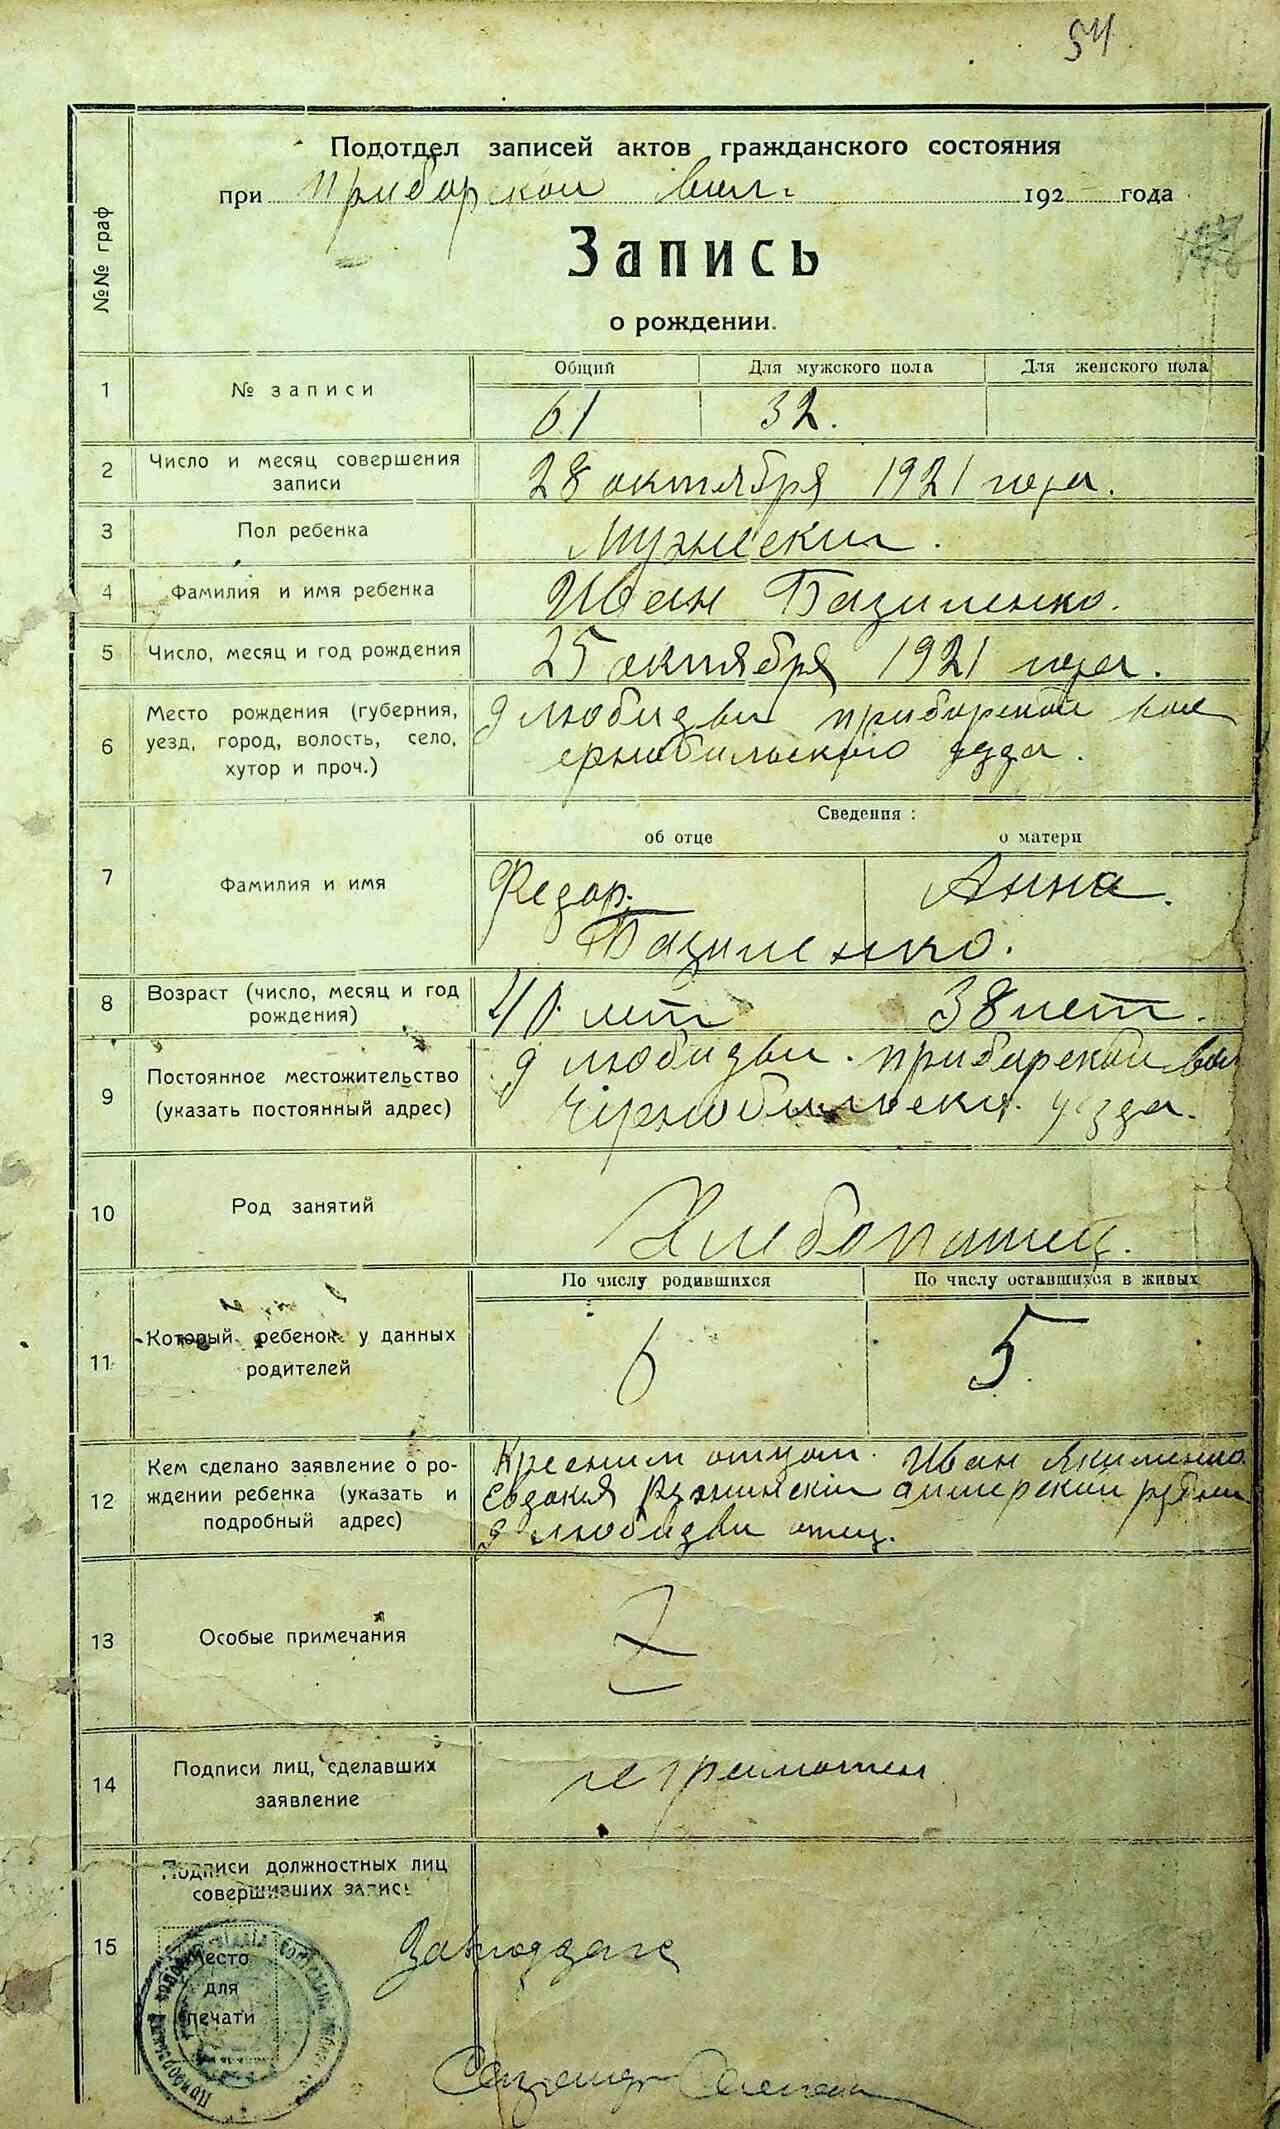 54
Подотдел записей актов гражданского состояния
при Приборской вол. 192 года
№№ граф
Запись
о рождении.
1 № записи
Общий Для мужского пола Для женского пола
61 32.
2 Число и месяц совершения записи
28 октября 1921 года.
3 Пол ребенка
Мужеский.
4 Фамилия и имя ребенка
Иван Базиленко.
5 Число, месяц и год рождения
25 октября 1921 года.
6 Место рождения (губерния,
уезд, город, волость, село,
хутор и проч.)
д Любизви Приборской вол
уезда.
Сведения:
об отце о матери
7 Фамилия и имя
Федор. Анна.
Базиленко.
8 Возраст (число, месяц и год
рождения)
40 лет 38 лет.
9 Постоянное местожительство
(указать постоянный адрес)
д Любизви. Приборской вол
уезда.
10 Род занятий
Хлебопашец.
11 Который ребенок у данных
родителей
По числу родившихся По числу оставшихся в живых
6 5
12 Кем сделано заявление о ро-
ждении ребенка (указать и
подробный адрес)
отцом. Иван Якименко
Евдокия
д Любизви отец.
13 Особые примечания
14 Подписи лиц, сделавших
заявление
не грамотен
15 Подписи должностных лиц
совершивших запись
Место
для
печати